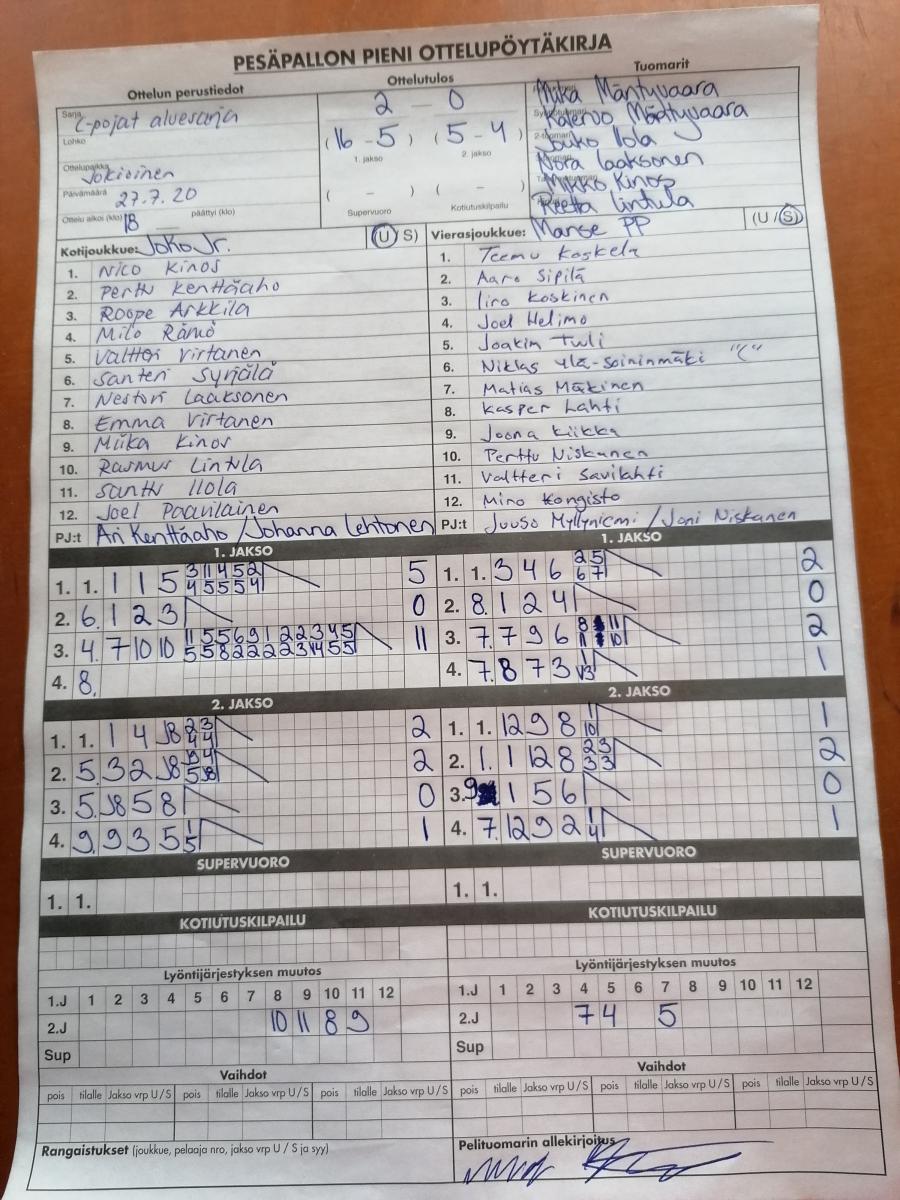 PESÄPALLON PIENI OTTELUPÖYTÄKIRJA
Ottelun perustiedot
Sarja C-pojat aluesarja
Lohko
Ottelupaikka Jokioinen
Päivämäärä 27.7.20
Ottelu alkoi (klo) 18 päättyi (klo)
Ottelutulos
2 - 0
(16 - 5) (5 - 4)
1. jakso 2. jakso
( - ) ( - )
Supervuoro Kotiutuskilpailu
Tuomarit
Mika Mäntyvaara
Kalervo Mäntyvaara
Jouko Ilola
Nora Laaksonen
Mikko Kinos
Reetta Lintula
Kotijoukkue: Joko Jr. (U / S)
1. Nico Kinos
2. Perttu Kenttäaho
3. Roope Arkkila
4. Milo Rämö
5. Valtteri Virtanen
6. Santeri Syrjälä
7. Nestori Laaksonen
8. Emma Virtanen
9. Miika Kinos
10. Rasmus Lintula
11. Santtu Ilola
12. Joel Paavilainen
PJ:t Ari Kenttäaho / Johanna Lehtonen
Vierasjoukkue: Manse PP (U / S)
1. Teemu Koskela
2. Aaro Sipilä
3. Iiro Koskinen
4. Joel Helimo
5. Joakim Tuuli
6. Niklas Ylä-Soininmäki "C"
7. Matias Mäkinen
8. Kasper Lahti
9. Joona Kiikka
10. Perttu Niskanen
11. Valtteri Savilahti
12. Miro Kongisto
PJ:t Juuso Myllyniemi / Joni Niskanen
1. JAKSO
1. 1. 1 1 5 3 11 4 5 2 5
4 5 5 5 4
2. 6. 1 2 3 0
3. 4. 7 10 10 11 5 5 6 9 1 2 2 3 4 5 11
5 5 8 2 2 2 2 3 14 5 5
4. 8.
1. JAKSO
1. 1. 3 4 6 2 5 2
6 7
2. 8. 1 2 4 0
3. 7. 7 9 6 8 11 2
11 10
4. 7. 8 7 3 1 1
V3
2. JAKSO
1. 1. 1 4 J8 2 3 2
4 4
2. 5. 3 2 J8 9 4 2
5 J8
3. 5. J8 5 8 0
4. 9. 9 3 5 1 1
5
2. JAKSO
1. 1. 12 9 8 1 1
10
2. 1. 1 12 8 2 3 2
3 3
3. 9 1 5 6 0
4. 7. 12 9 2 1 1
4
SUPERVUORO
1. 1.
SUPERVUORO
1. 1.
KOTIUTUSKILPAILU
KOTIUTUSKILPAILU
Lyöntijärjestyksen muutos
1.J 1 2 3 4 5 6 7 8 9 10 11 12
2.J 10 11 8 9
Sup
Lyöntijärjestyksen muutos
1.J 1 2 3 4 5 6 7 8 9 10 11 12
2.J 7 4 5
Sup
Vaihdot
pois tilalle Jakso vrp U / S pois tilalle Jakso vrp U / S pois tilalle Jakso vrp U / S
Vaihdot
pois tilalle Jakso vrp U / S pois tilalle Jakso vrp U / S pois tilalle Jakso vrp U / S
Rangaistukset (joukkue, pelaaja nro, jakso vrp U / S ja syy)
Pelituomarin allekirjoitus